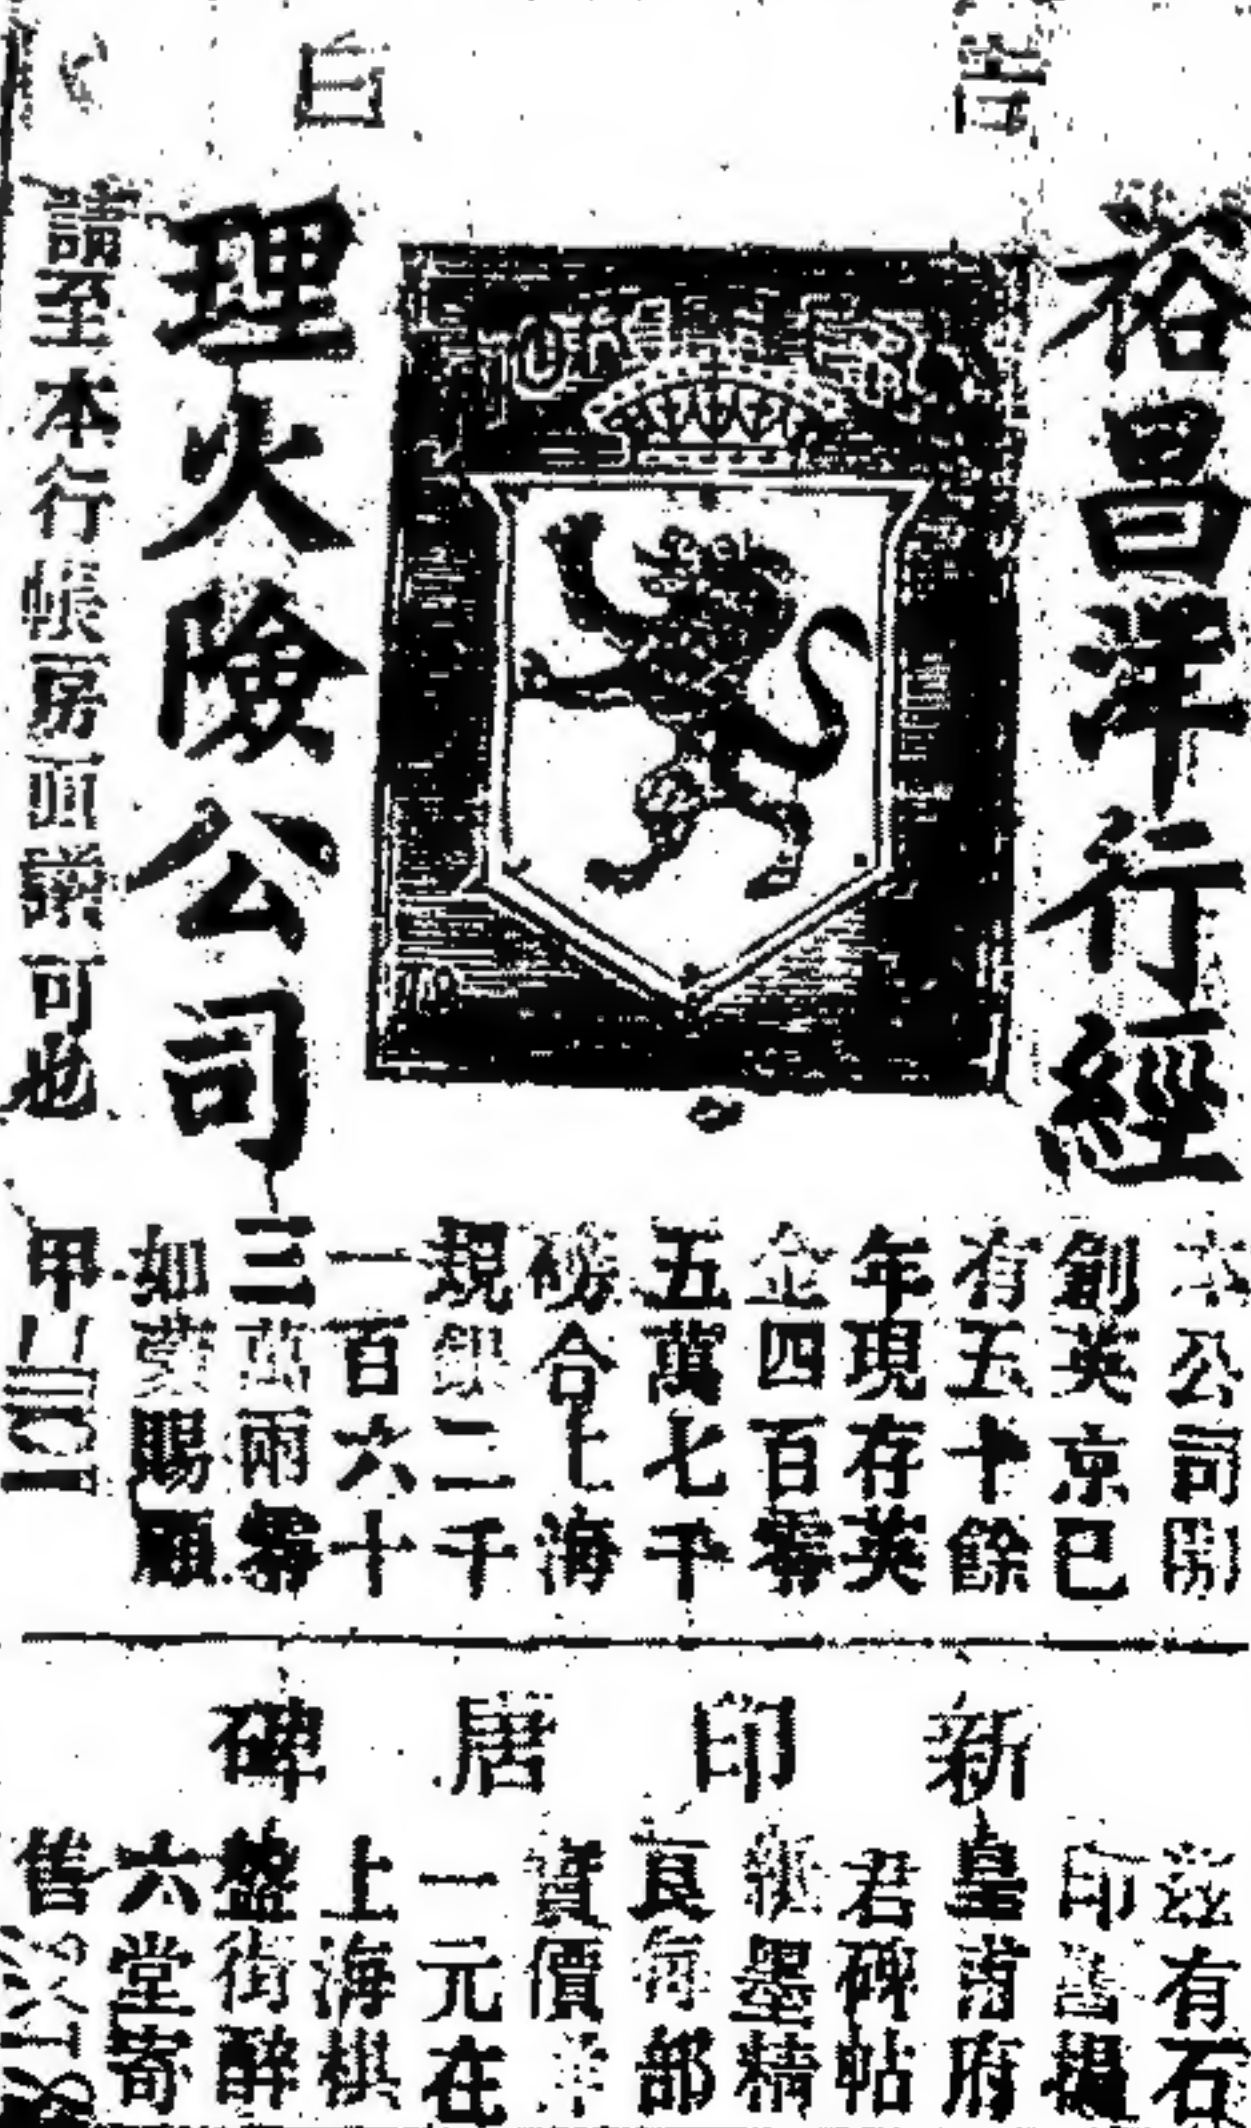 告白
裕昌洋行經
理火險公司
本公司開
創英京已
有五十餘
年現存英
金四百零
五萬七千
磅合上海
規銀二千
一百六十
三萬兩零
如蒙賜顧
請至本行帳房面議可也
甲
新印唐碑
茲有石
印舊搨
皇甫府
君碑帖
紙墨精
良每部
實價洋
一元在
上海棋
盤街醉
六堂寄
售